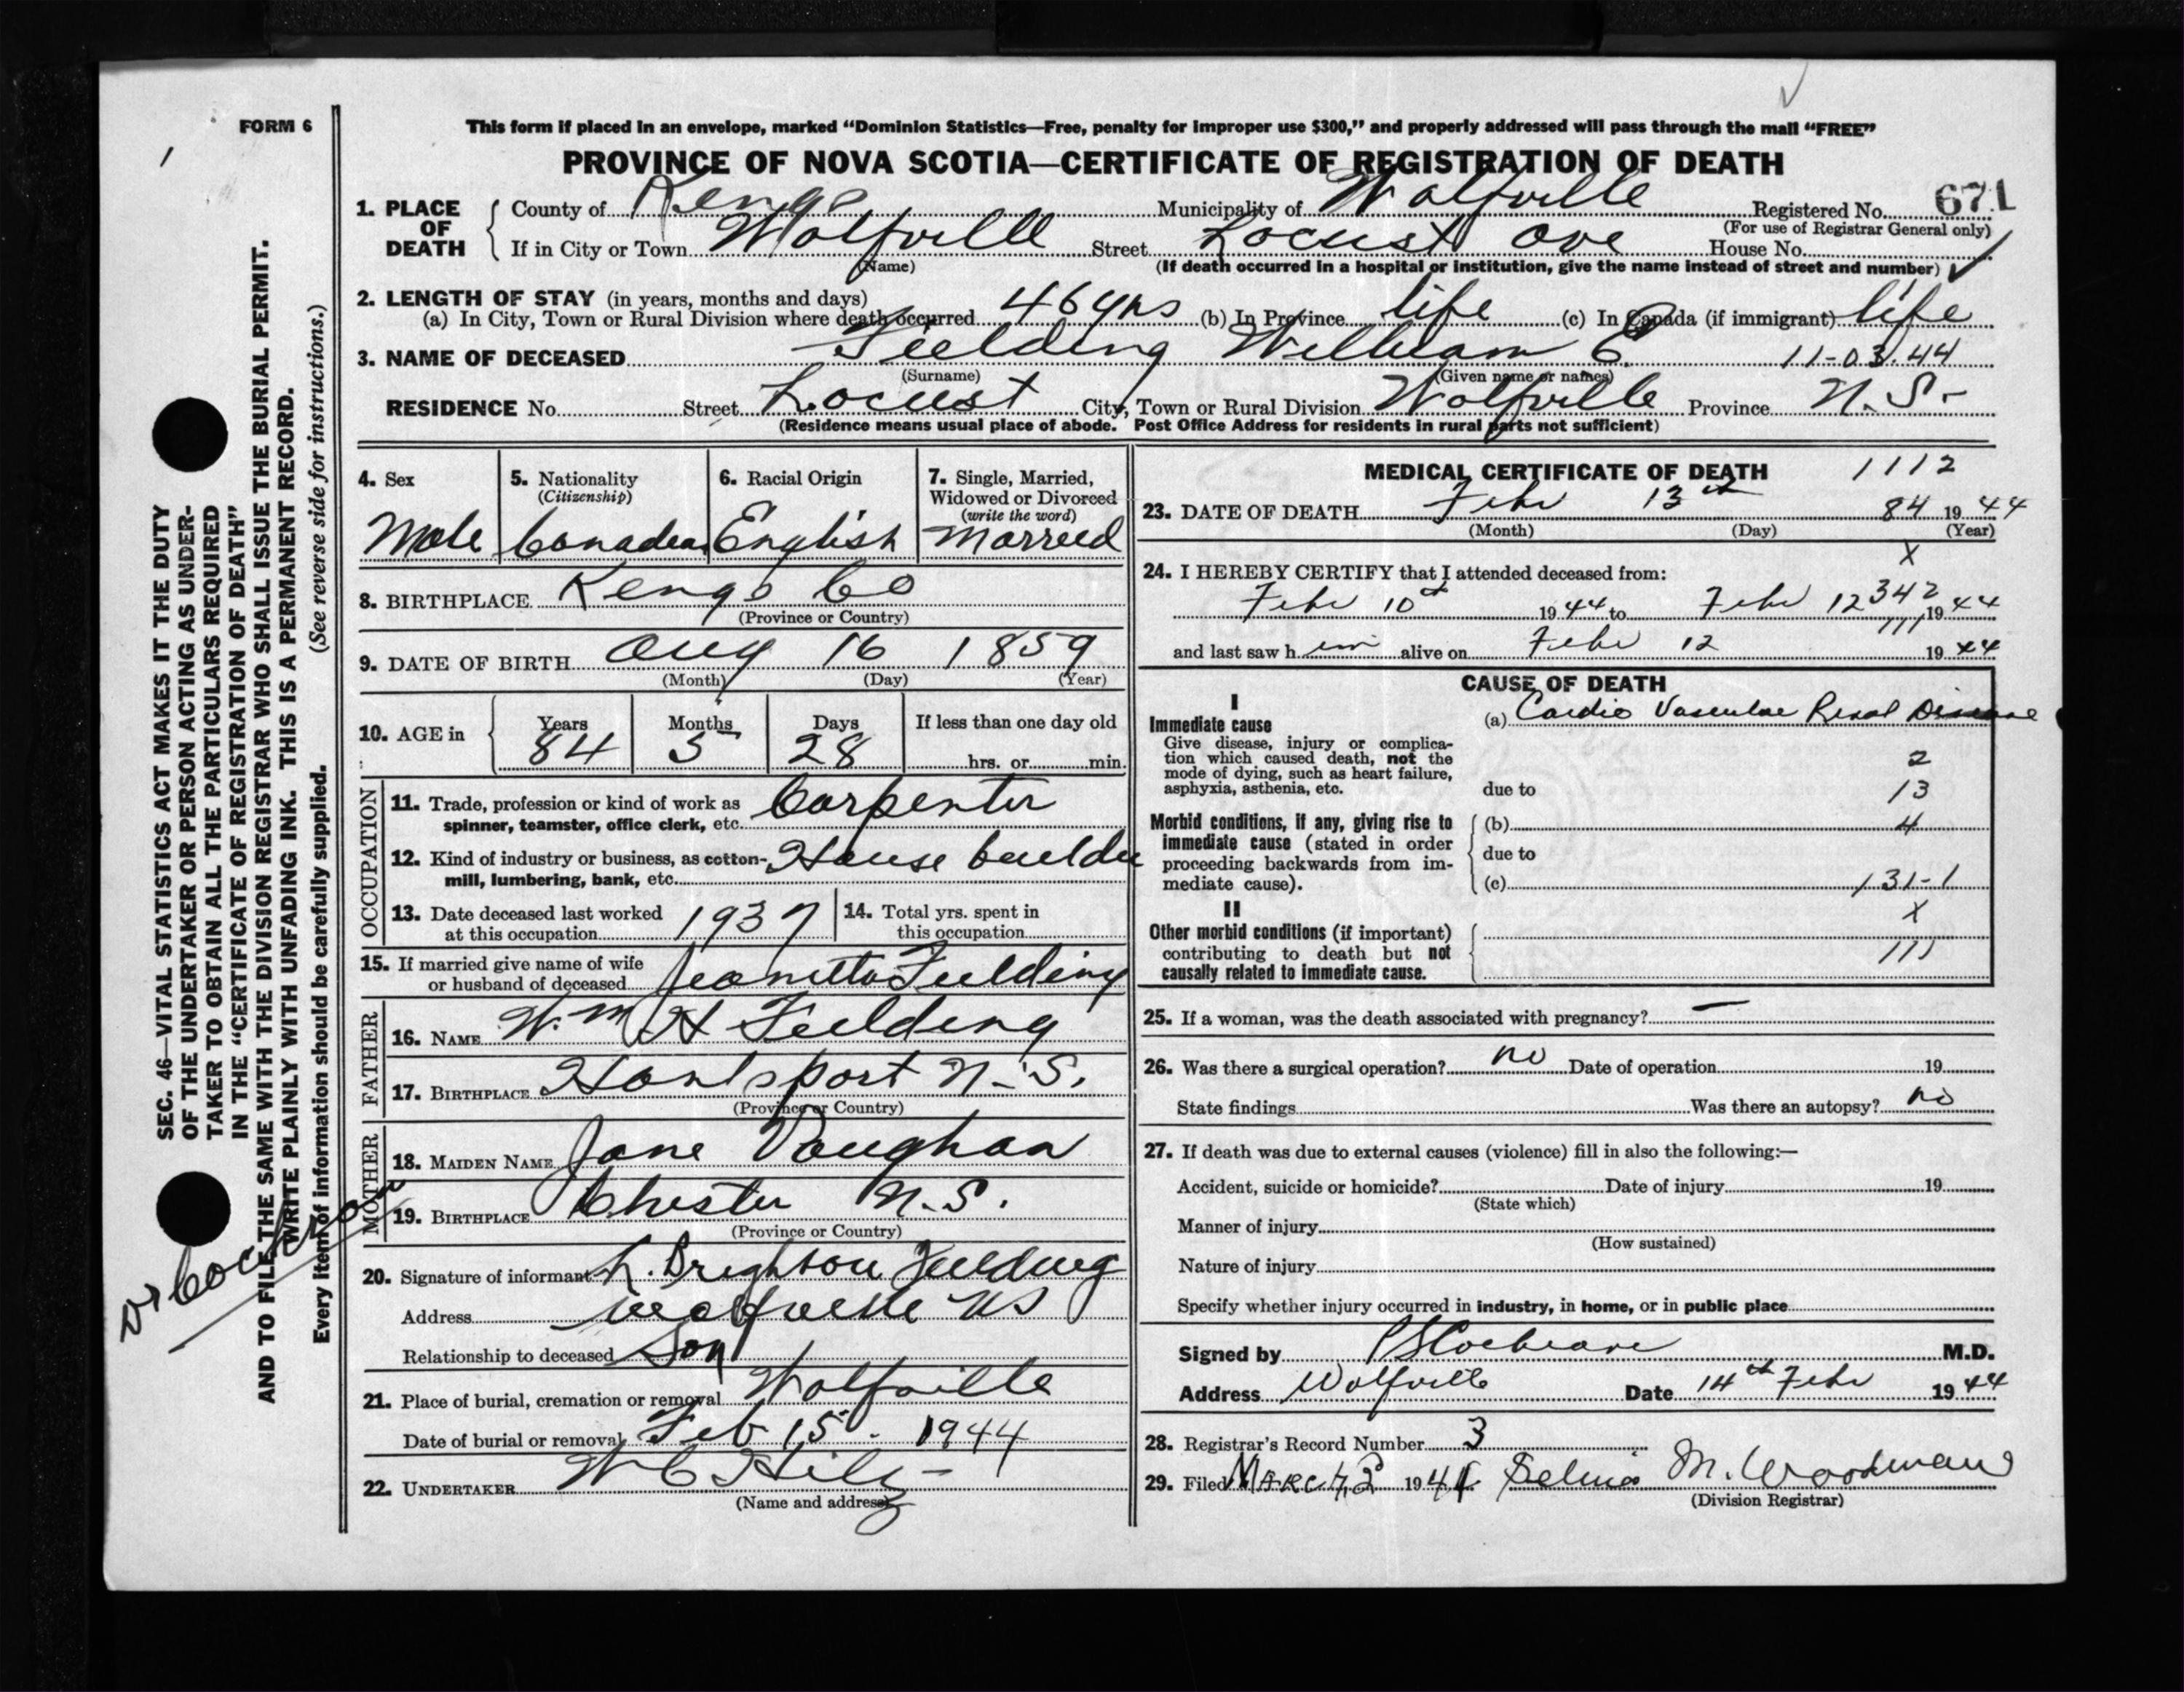 FORM 6
This form if placed in an envelope, marked “Dominion Statistics—Free, penalty for improper use $300,” and properly addressed will pass through the mail “FREE”
PROVINCE OF NOVA SCOTIA—CERTIFICATE OF REGISTRATION OF DEATH
1. PLACE OF DEATH
County of Kings Municipality of Wolfville Registered No. 671
(For use of Registrar General only)
If in City or Town Wolfville Street Locust Ave House No.
(Name) (If death occurred in a hospital or institution, give the name instead of street and number)
2. LENGTH OF STAY (in years, months and days)
(a) In City, Town or Rural Division where death occurred 46 yrs (b) In Province life (c) In Canada (if immigrant) life
3. NAME OF DECEASED Fielding William E. 11-03.44
(Surname) (Given name or names)
RESIDENCE No. Street Locust City, Town or Rural Division Wolfville Province N.S.
(Residence means usual place of abode. Post Office Address for residents in rural parts not sufficient)
4. Sex
Male
5. Nationality
(Citizenship)
Canadian
6. Racial Origin
English
7. Single, Married,
Widowed or Divorced
(write the word)
Married
8. BIRTHPLACE Kings Co
(Province or Country)
9. DATE OF BIRTH Aug 16 1859
(Month) (Day) (Year)
10. AGE in Years Months Days If less than one day old
84 5 28 hrs. or min.
OCCUPATION
11. Trade, profession or kind of work as
spinner, teamster, office clerk, etc. Carpenter
12. Kind of industry or business, as cotton-
mill, lumbering, bank, etc. House builder
13. Date deceased last worked
at this occupation 1937
14. Total yrs. spent in
this occupation
15. If married give name of wife
or husband of deceased Jeanetta Fielding
FATHER
16. NAME Wm H Fielding
17. BIRTHPLACE Hantsport N.S.
(Province or Country)
MOTHER
18. MAIDEN NAME Jane Vaughan
19. BIRTHPLACE Chester N.S.
(Province or Country)
20. Signature of informant L. Brighton Fielding
Address Wolfville NS
Relationship to deceased Son
21. Place of burial, cremation or removal Wolfville
Date of burial or removal Feb 15. 1944
22. UNDERTAKER W C Hiltz
(Name and address)
MEDICAL CERTIFICATE OF DEATH 1112
23. DATE OF DEATH Feby 13th 84 1944
(Month) (Day) (Year)
X
24. I HEREBY CERTIFY that I attended deceased from:
Feby 10th 1944 to Feby 12 342 1944
111
and last saw h im alive on Feby 12 1944
CAUSE OF DEATH
I
Immediate cause
Give disease, injury or complica-
tion which caused death, not the
mode of dying, such as heart failure,
asphyxia, asthenia, etc.
(a) Cardio Vascular Renal Disease
2
due to 13
Morbid conditions, if any, giving rise to
immediate cause (stated in order
proceeding backwards from im-
mediate cause).
(b) 4
due to
(c) 131-1
II
X
Other morbid conditions (if important)
contributing to death but not
causally related to immediate cause.
111
25. If a woman, was the death associated with pregnancy? —
26. Was there a surgical operation? no Date of operation 19
State findings Was there an autopsy? no
27. If death was due to external causes (violence) fill in also the following:—
Accident, suicide or homicide? Date of injury 19
(State which)
Manner of injury
(How sustained)
Nature of injury
Specify whether injury occurred in industry, in home, or in public place
Signed by PS Cochrane M.D.
Address Wolfville Date 14th Feby 1944
28. Registrar's Record Number 3
29. Filed March 2 1944 Selina M. Woodman
(Division Registrar)
SEC. 46—VITAL STATISTICS ACT MAKES IT THE DUTY
OF THE UNDERTAKER OR PERSON ACTING AS UNDER-
TAKER TO OBTAIN ALL THE PARTICULARS REQUIRED
IN THE “CERTIFICATE OF REGISTRATION OF DEATH”
AND TO FILE THE SAME WITH THE DIVISION REGISTRAR WHO SHALL ISSUE THE BURIAL PERMIT.
WRITE PLAINLY WITH UNFADING INK. THIS IS A PERMANENT RECORD.
Every item of information should be carefully supplied. (See reverse side for instructions.)
Dr Cochran